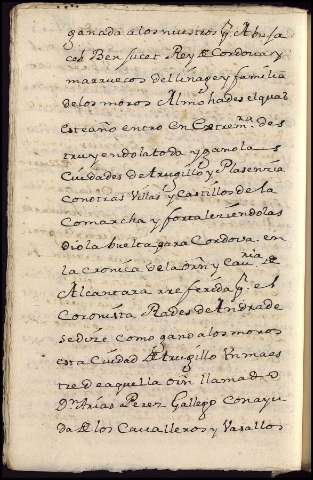 ganada a los nuestros pr Abusa
cob Ben Jucef Rey de Cordova y
marruecos del linage y familia
de los moros Almohades el qual
este año entro en Extremra. des
truyendola toda y ganó las
Ciudades de trugillo y Plasencia
con otras Villas y Castillos de la
Comarcha y fortaleciendolas
dio la buelta para Cordova. en
la cronica de la orn y Cavria de
Alcantara rreferida pr. el
Coronista Rades de Andrade
se dice como gano a los moros
esta Ciudad de trugillo Vn maes
tre de aquella orn llamado
Dn Arias Perez Gallego con ayu
da de los Cavalleros y Vasallos